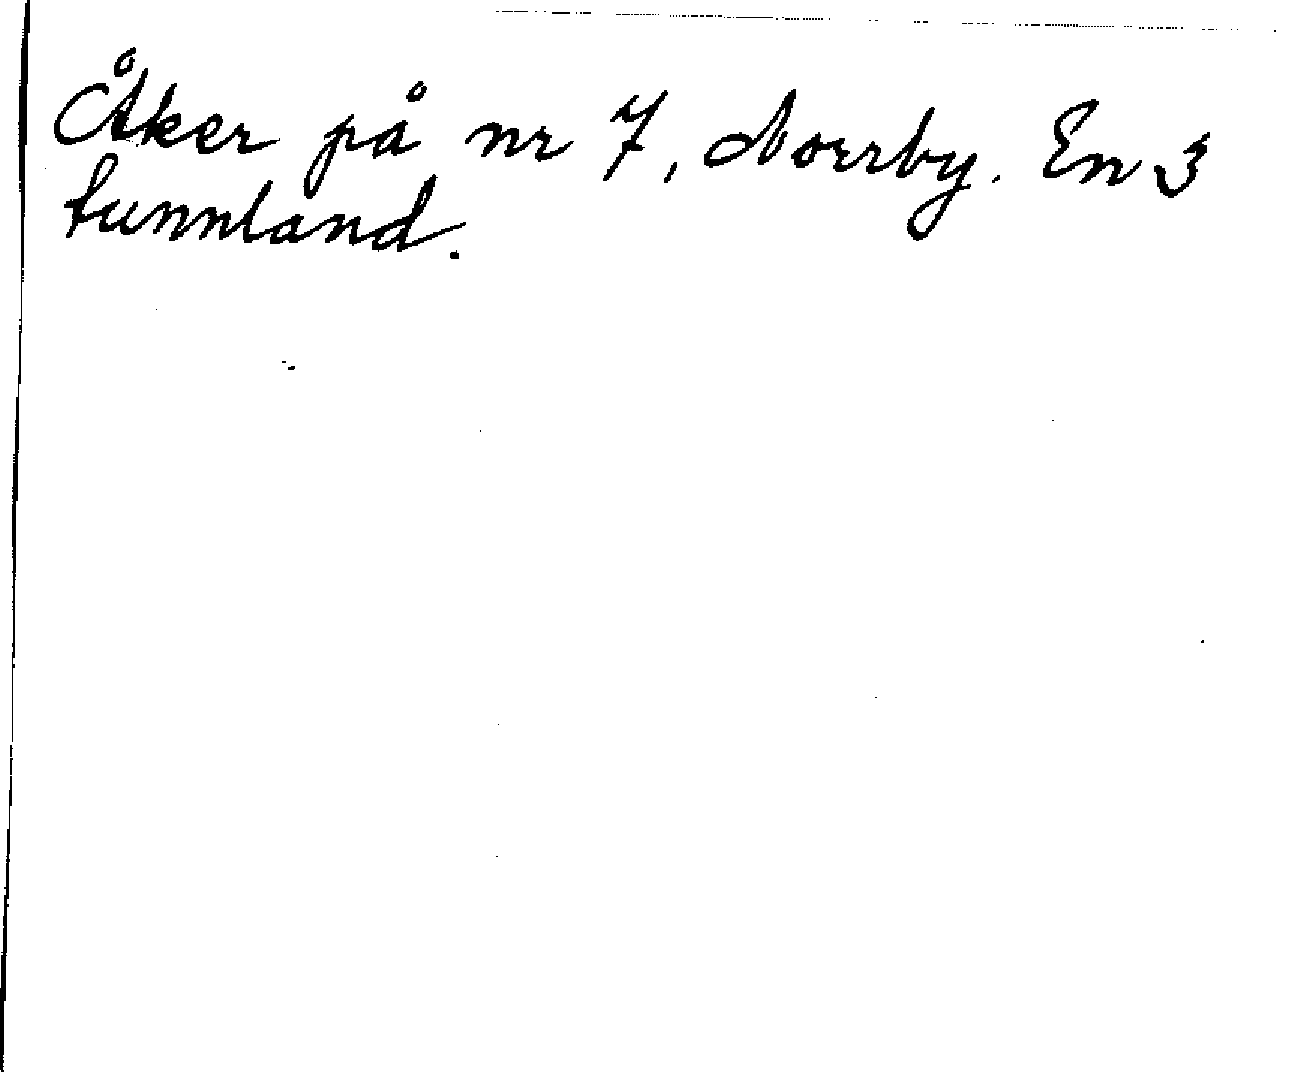 Åker på nr 7, Norrby. En 3
tunnland.